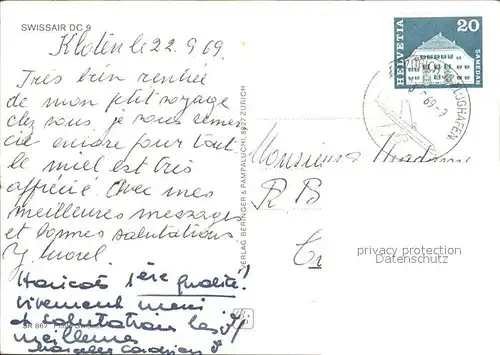 SWISSAIR DC 9
Kloten le 22.9.69.
Très bien rentrée
de mon petit voyage
chez vous je vous remer
cie encore pour tout
le miel est très
apprécié. Avec mes
meilleures messages
et bonnes salutations
Y. Morel.
Haricots 1ère qualité!
vivement merci
et salutations les
meilleures
SR 867
VERLAG BERINGER & PAMPALUCHI, 8027 ZÜRICH
HELVETIA
20
SAMEDAN
FLUGHAFEN
Monsieur Madame
R B
privacy protection
Datenschutz